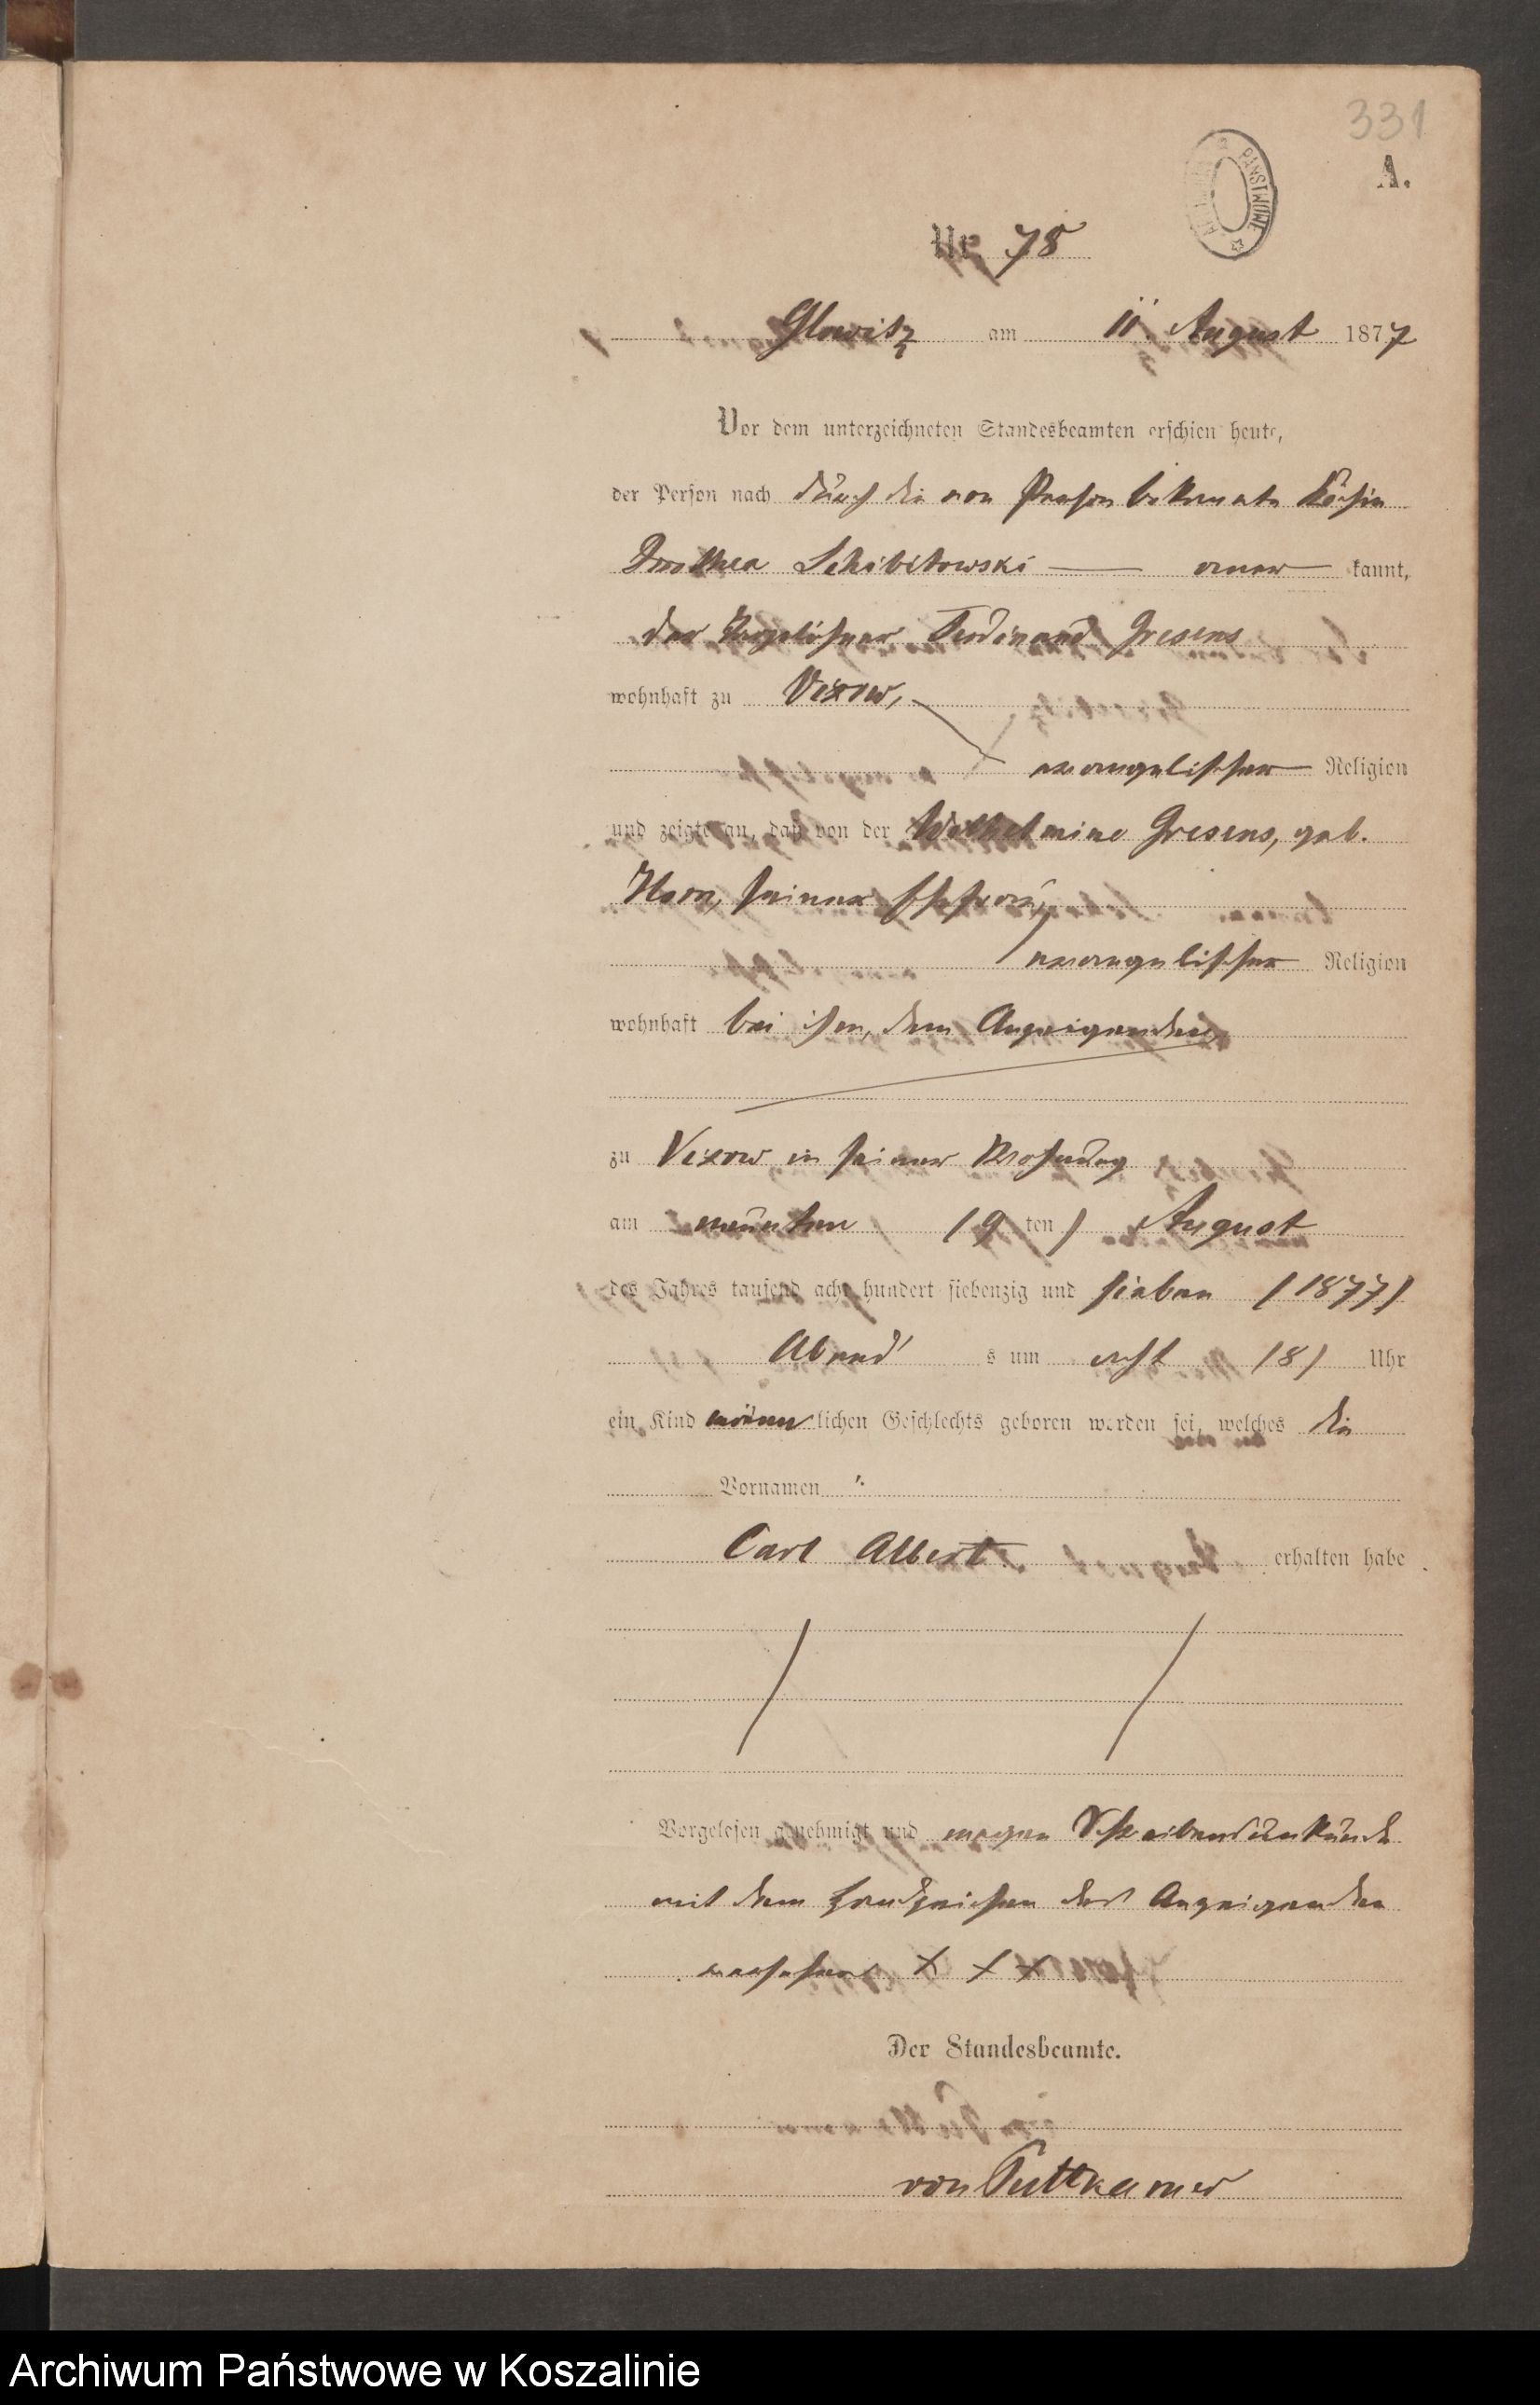 331
A.
PAŃSTWOWE
Nr. 78
Glowitz am 11. August 1877
Vor dem unterzeichneten Standesbeamten erschien heute,
der Person nach durch die von Person bekannte Köchin
Dorothea Schibitowski — aner kannt,
der Tagelöhner Ferdinand Gresens
wohnhaft zu Vixow,
evangelischer Religion
und zeigte an, daß von der Wilhelmine Gresens, geb.
Horn, seiner Ehefrau,
evangelischer Religion
wohnhaft bei ihm, dem Anzeigenden,
zu Vixow, in seiner Wohnung
am neunten (9 ten) August
des Jahres tausend acht hundert siebenzig und sieben (1877)
Abend s um acht (8) Uhr
ein Kind männ lichen Geschlechts geboren worden sei, welches die
Vornamen :
Carl Albert erhalten habe
Vorgelesen genehmigt und wegen Schreibensunkunde
mit dem Handzeichen des Anzeigenden
versehen X X X
Der Standesbeamte.
von Puttkamer
Archiwum Państwowe w Koszalinie